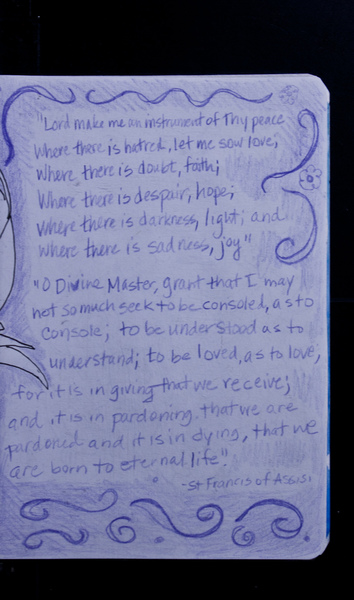 "Lord make me an instrument of Thy peace
where there is hatred, let me sow love;
where there is doubt, faith;
where there is despair, hope;
where there is darkness, light; and
where there is sadness, joy"
"O Divine Master, grant that I may
not so much seek to be consoled, as to
console; to be understood as to
understand; to be loved, as to love;
for it is in giving that we receive;
and it is in pardoning that we are
pardoned and it is in dying, that we
are born to eternal life".
-St Francis of Assisi